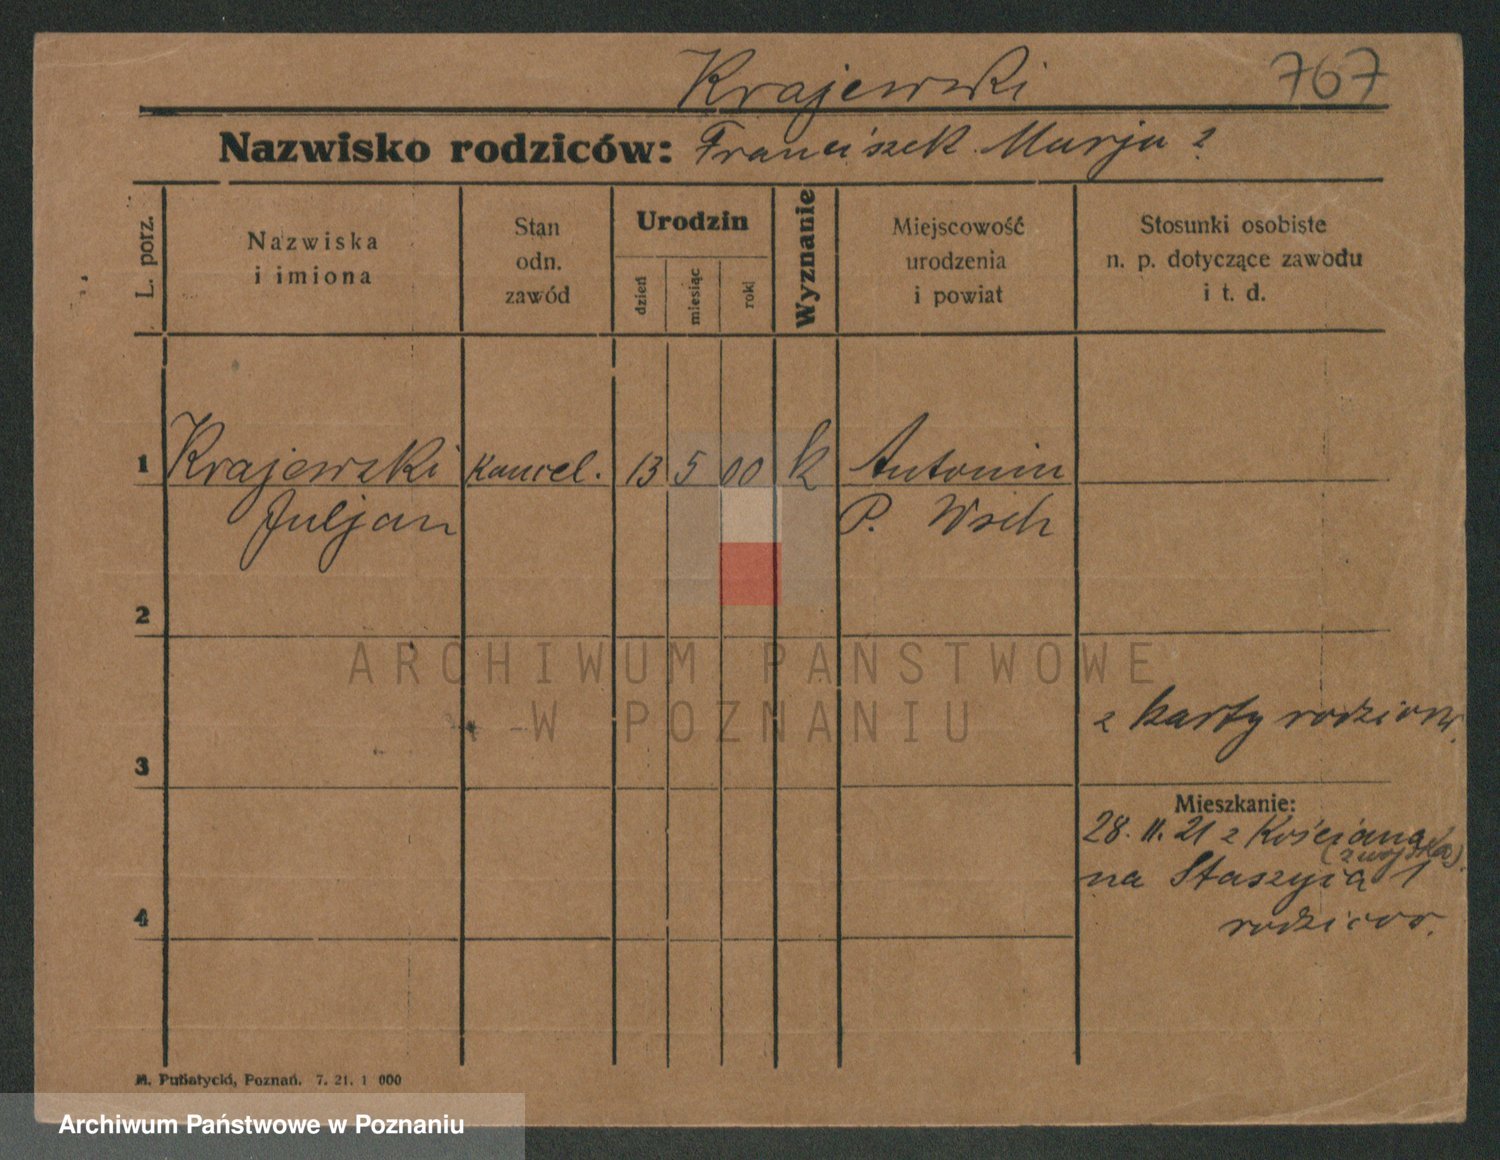 Krajewski 767
Nazwisko rodziców: Franciszek Marja ?
L. porz.
Nazwiska
i imiona
Stan
odn.
zawód
Urodzin
dzień
miesiąc
rok
Wyznanie
Miejscowość
urodzenia
i powiat
Stosunki osobiste
n. p. dotyczące zawodu
i t. d.
1 Krajewski kancel. 13 5 00 k Antonin
Juljan P. Wsch
2
ARCHIWUM PAŃSTWOWE
W POZNANIU
z karty rodziców.
3
Mieszkanie:
28. II. 21 z Kościana
(z wojska)
na Staszyca 1
4
rodziców.
M. Putiatycki, Poznań. 7. 21. 1 000
Archiwum Państwowe w Poznaniu